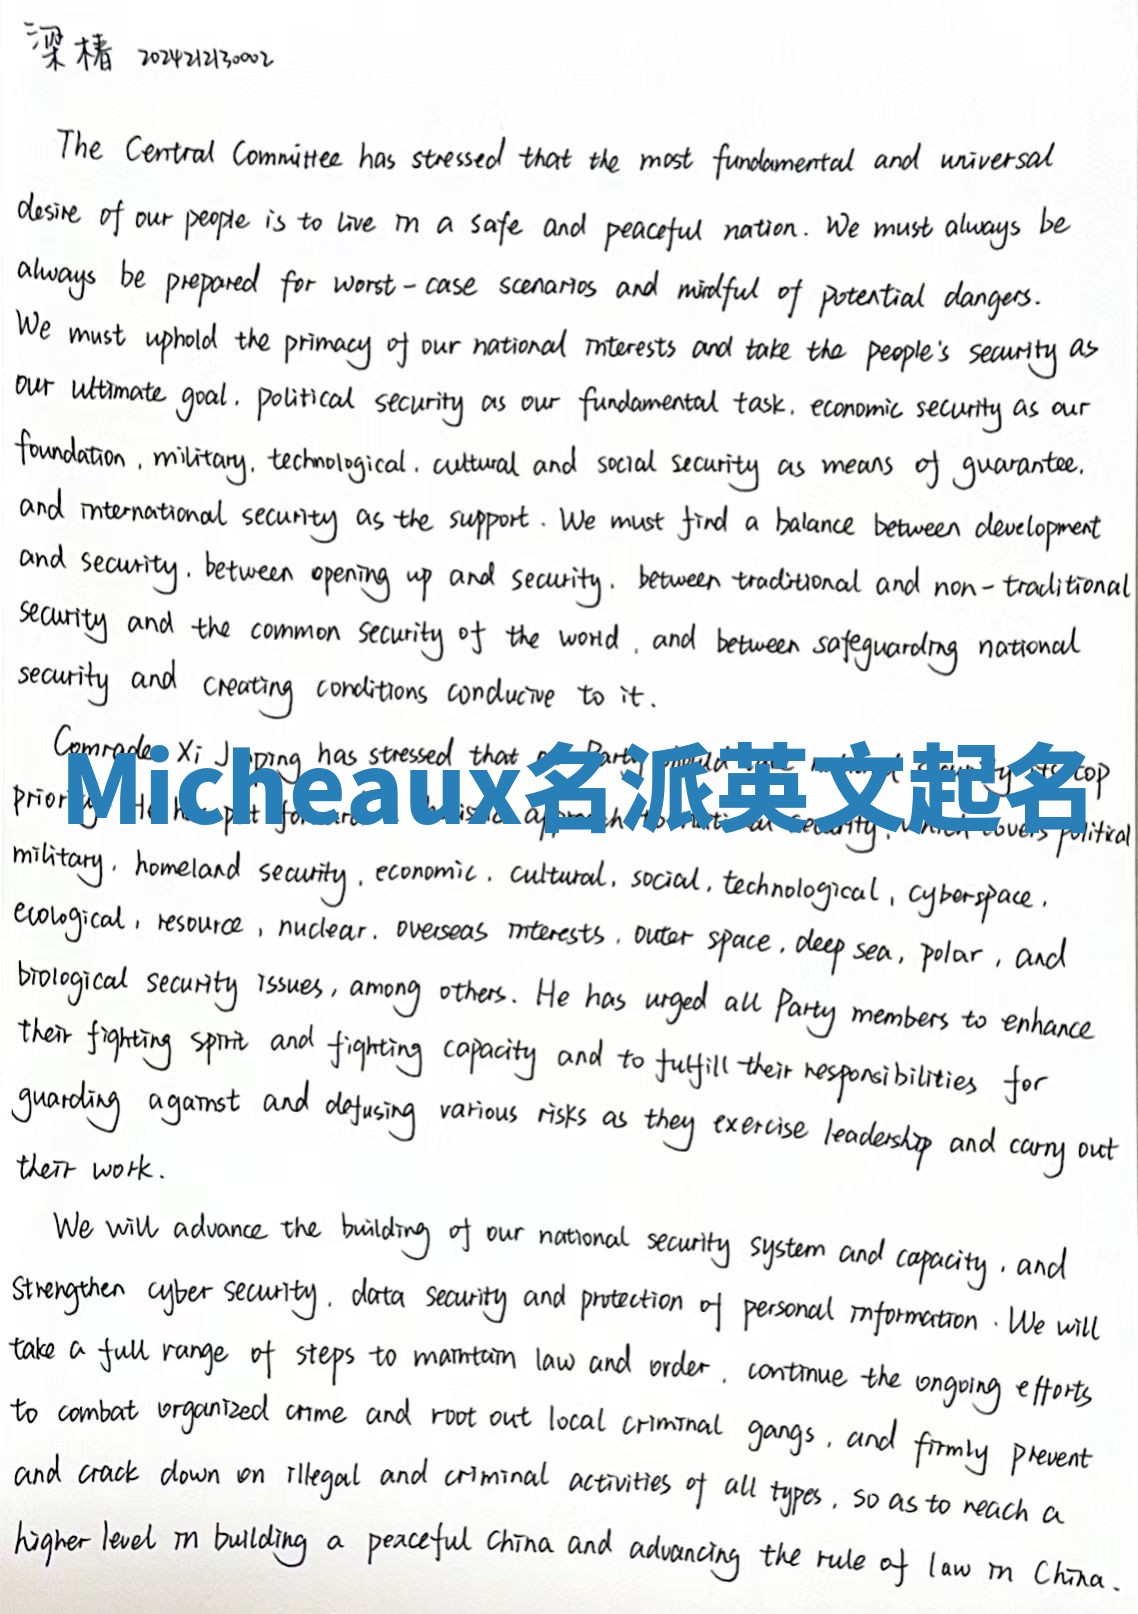 梁椿 2024212130002
The Central Committee has stressed that the most fundamental and universal
desire of our people is to live in a safe and peaceful nation. We must always be
always be prepared for worst-case scenarios and mindful of potential dangers.
We must uphold the primacy of our national interests and take the people's security as
our ultimate goal, political security as our fundamental task, economic security as our
foundation, military, technological, cultural and social security as means of guarantee,
and international security as the support. We must find a balance between development
and security, between opening up and security, between traditional and non-traditional
security and the common security of the world, and between safeguarding national
security and creating conditions conducive to it.
Comrade Xi Jinping has stressed that Party top
Micheaux名派英文起名
He has put security, which covers political
military, homeland security, economic, cultural, social, technological, cyberspace,
ecological, resource, nuclear, overseas interests, outer space, deep sea, polar, and
biological security issues, among others. He has urged all Party members to enhance
their fighting spirit and fighting capacity and to fulfill their responsibilities for
guarding against and defusing various risks as they exercise leadership and carry out
their work.
We will advance the building of our national security system and capacity, and
strengthen cyber security, data security and protection of personal information. We will
take a full range of steps to maintain law and order, continue the ongoing efforts
to combat organized crime and root out local criminal gangs, and firmly prevent
and crack down on illegal and criminal activities of all types, so as to reach a
higher level in building a peaceful China and advancing the rule of law in China.